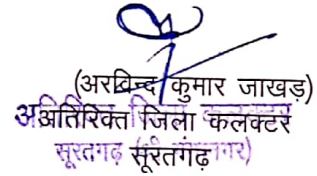 (अरबिन्द कुमार जाखड़)
अतिरिक्त जिला कलक्टर
सूरतगढ़